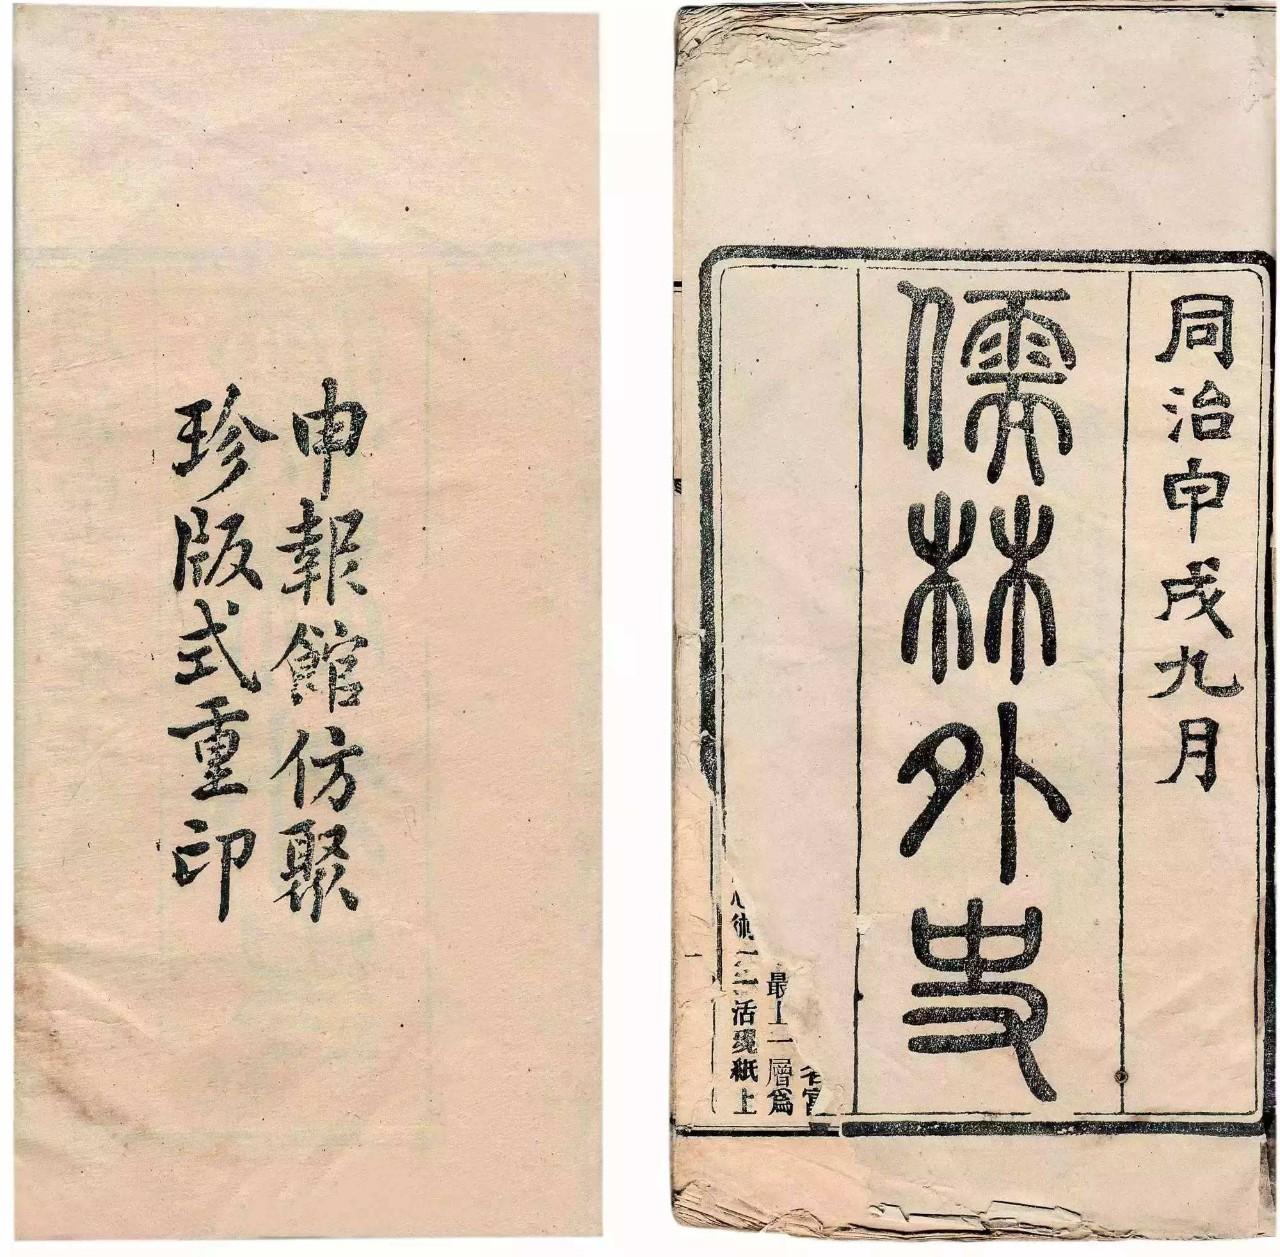 同治甲戌九月
儒林外史
最上一層爲
活現紙上
申報館仿聚
珍版式重印